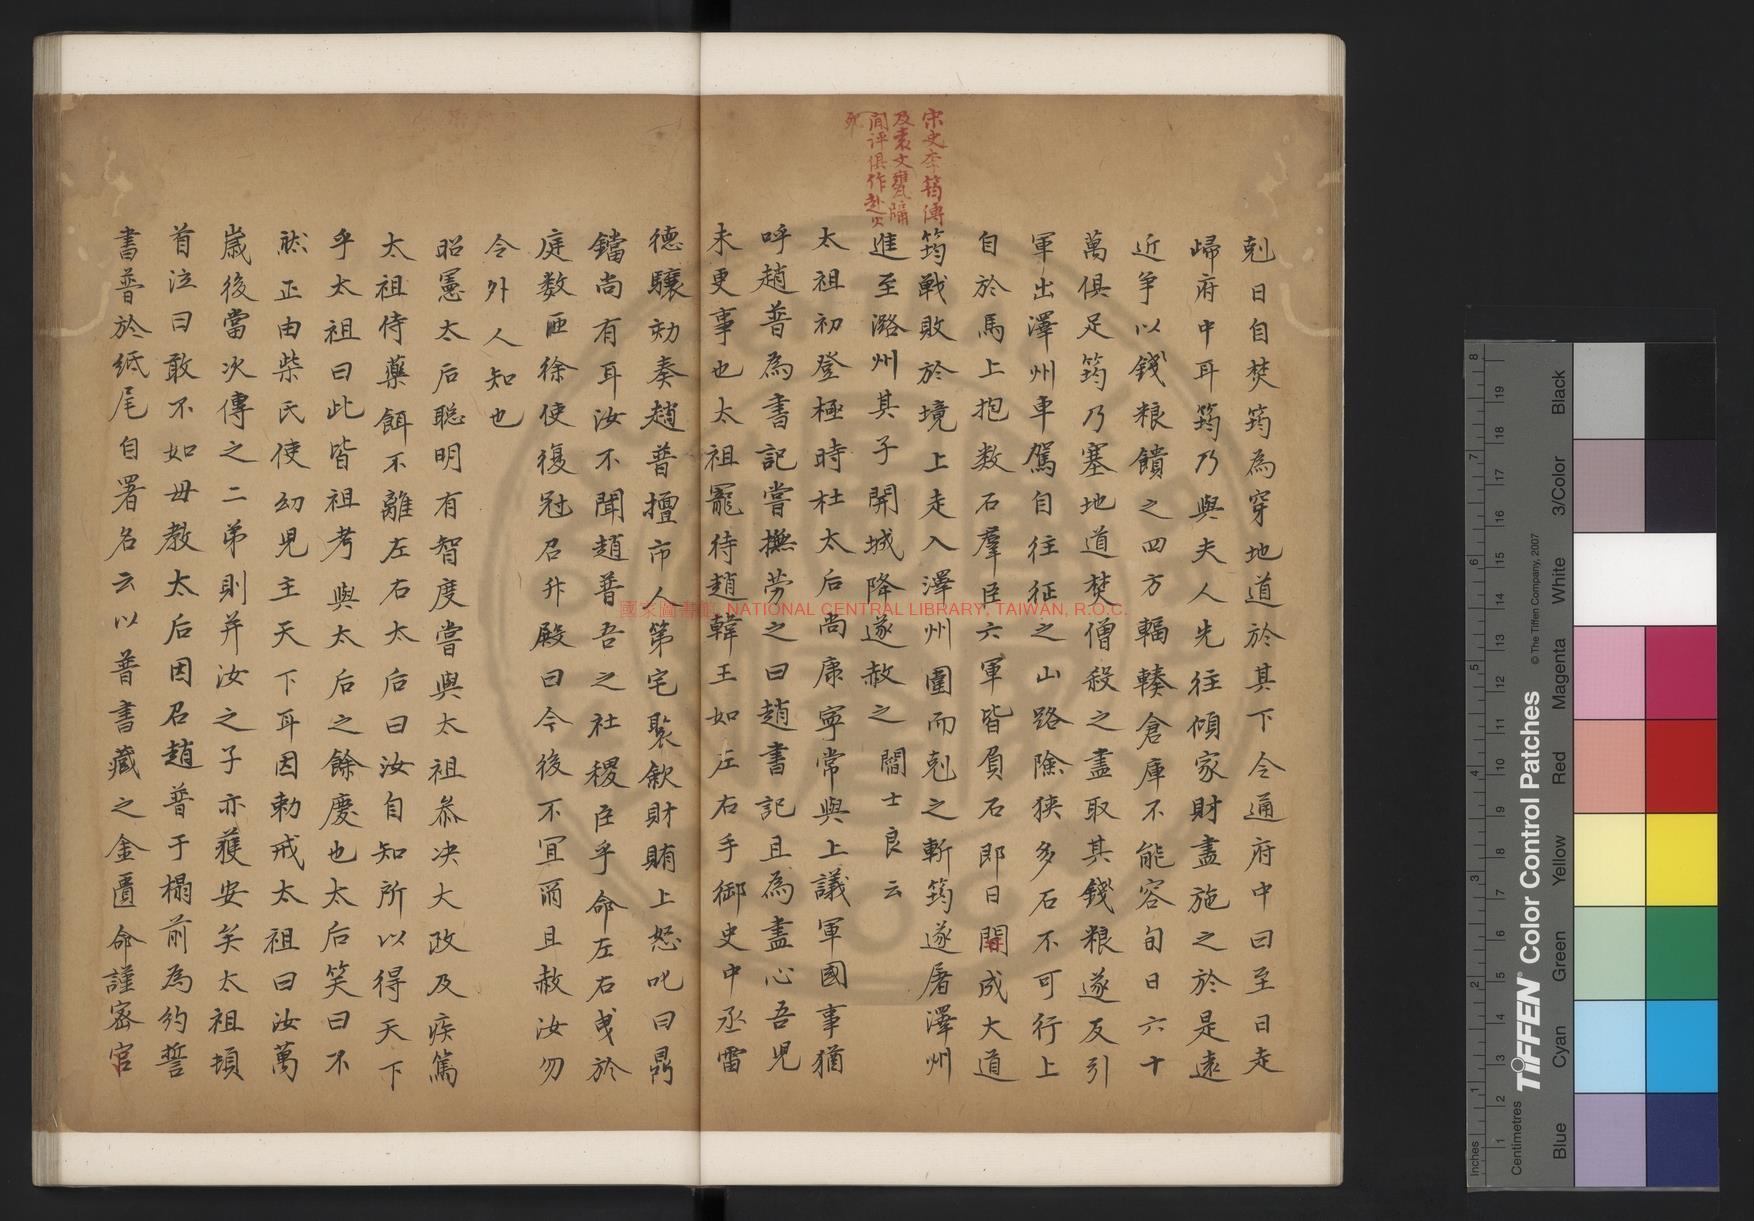 宋史李筠傳
及袁文甕牖
閒評俱作赴火
死
剋日自焚筠為穿地道於其下令通府中曰至日走
歸府中耳筠乃與夫人先往傾家財盡施之於是遠
近爭以錢粮饋之四方輻輳倉庫不能容旬日六十
萬俱足筠乃塞地道焚僧殺之盡取其錢粮遂反引
軍出澤州車駕自往征之山路險狹多石不可行上
自於馬上抱数石羣臣六軍皆負石即日開成大道
筠戰敗於境上走入澤州圍而剋之斬筠遂屠澤州
進至潞州其子開城降遂赦之 閭士良云
太祖初登極時杜太后尚康寧常與上議軍國事猶
呼趙普為書記嘗撫劳之曰趙書記且為盡心吾兒
未更事也太祖寵待趙韓王如左右手御史中丞雷
德驤劾奏趙普擅市人第宅聚歛財賄上怒叱曰鼎
鐺尚有耳汝不聞趙普吾之社稷臣乎命左右曵於
庭数匝徐使復冠召升殿曰今後不冝爾且赦汝勿
令外人知也
昭憲太后聡明有智度嘗與太祖叅决大政及疾篤
太祖侍藥餌不離左右太后曰汝自知所以得天下
乎太祖曰此皆祖考與太后之餘慶也太后笑曰不
然正由柴氏使幼兒主天下耳因勅戒太祖曰汝萬
歲後當次傳之二弟則并汝之子亦獲安矣太祖頓
首泣曰敢不如母教太后因召趙普于榻前為約誓
書普於紙尾自署名云以普書藏之金匱命謹宻官
國家圖書館 NATIONAL CENTRAL LIBRARY, TAIWAN, R.O.C.
TIFFEN® Color Control Patches
© The Tiffen Company, 2007
Inches
Centimetres
Blue
Cyan
Green
Yellow
Red
Magenta
White
3/Color
Black